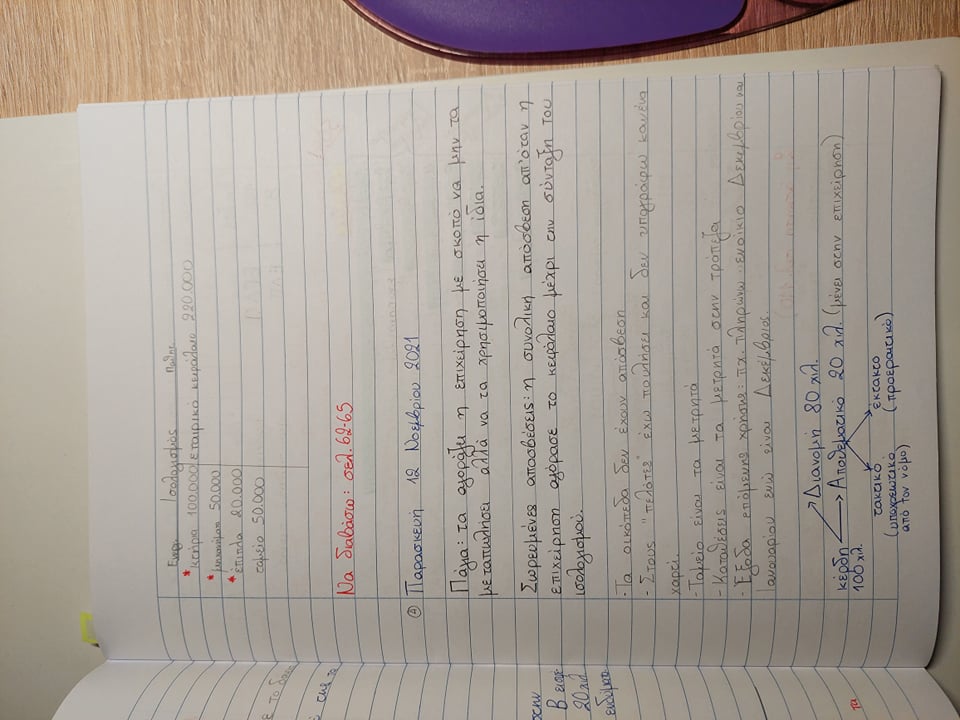 Ενεργ. Ισολογισμός Παθης
*κτήρια 100.000 εταιρικό κεφάλαιο 220.000
*μηχανήματα 50.000
*έπιπλα 20.000
ταμείο 50.000
Να διαβάσω: σελ. 62-65
Παρασκευή 12 Νοεμβρίου 2021
Πάγια: τα αγοράζει η επιχείρηση με σκοπό να μην τα
μεταπωλήσει αλλά να τα χρησιμοποιήσει η ίδια.
Σωρευμένες αποσβέσεις: η συνολική απόσβεση απ'όταν η
επιχείρηση αγόρασε το κεφάλαιο μέχρι την σύνταξη του
ισολογισμού.
- Τα οικόπεδα δεν έχουν απόσβεση
- Στους "πελάτες" έχω πουλήσει και δεν υπογράφω κανένα
χαρτί.
- Ταμείο είναι τα μετρητά
- Καταθέσεις είναι τα μετρητά στην τράπεζα
- Έξοδα επόμενης χρήσης: πχ. πληρώνω ενοίκιο Δεκεμβρίου και
Ιανουαρίου ενώ είναι Δεκέμβριος.
Διανομή 80 χιλ.
κέρδη Αποθεματικό 20 χιλ. (μένει στην επιχείρηση)
100 χιλ.
τακτικό έκτακτο
(υποχρεωτικό (προαιρετικό)
από τον νόμο)
στην
Β εισφέ
20 χιλ.
ενδύματα
τα